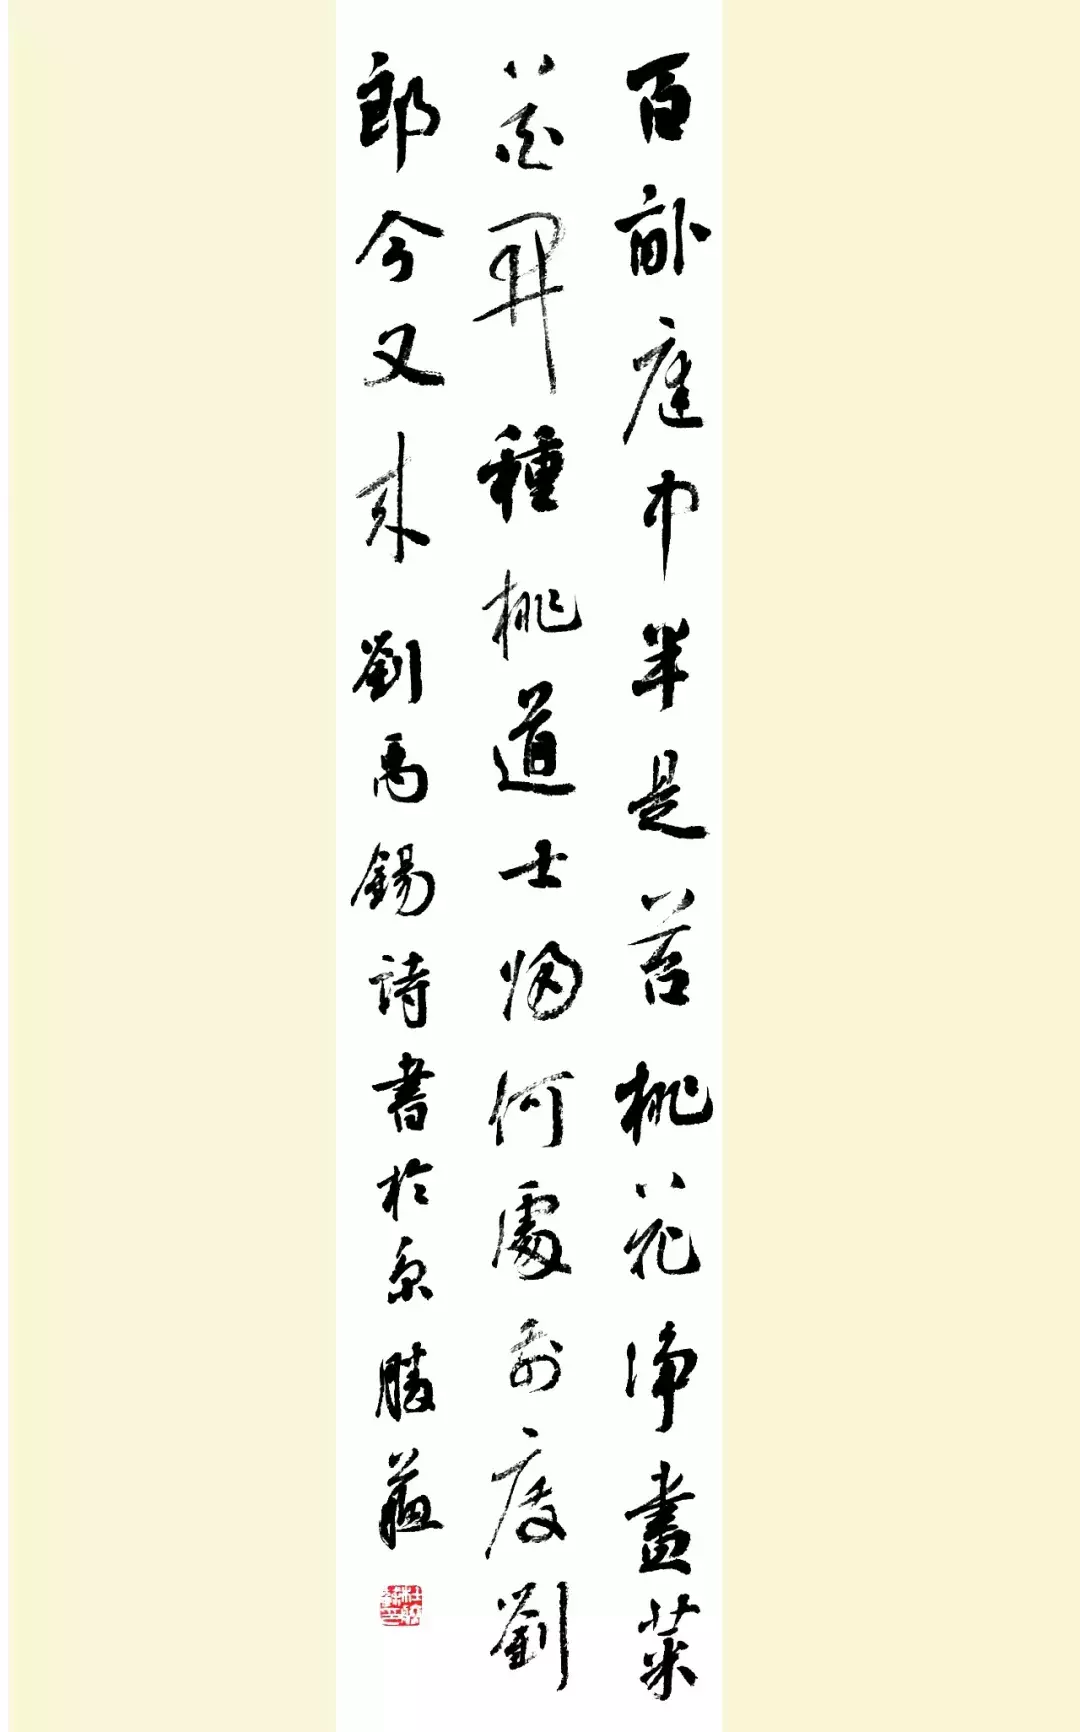 百畝庭中半是苔桃花淨盡菜
花開種桃道士歸何處前度劉
郎今又來 劉禹錫詩書於京勝蘇